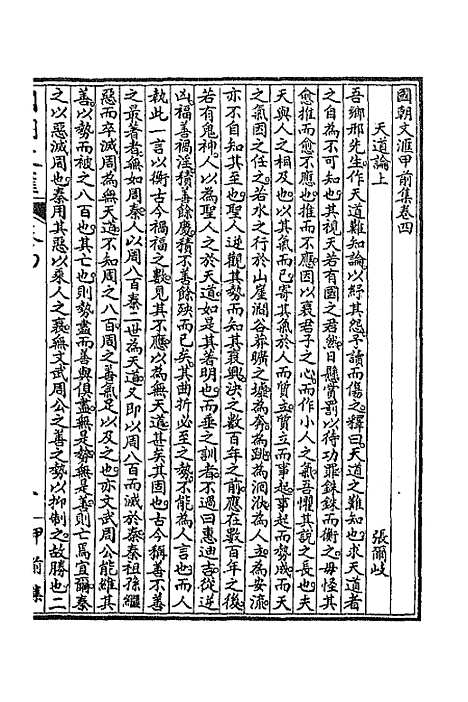 國朝文滙甲前集卷四
天道論上　　　　　　　　　　張爾岐
吾鄉邢先生作天道難知論以紓其怨予讀而傷之釋曰天道之難知也求天道者
之自為不可知也其視天若有國之君然日懸賞罰以待功罪銖銖而衡之毋怪其
愈推而愈不應也推而不應因以衰君子之心而作小人之氣吾懼其說之長也夫
天與人之相及也以其氣而已寄其氣於人而質立質立而事起事起而勢成而天
之氣因之任之若水之行於山崖澗谷莽曠之墟為奔為跳為洄洑為人立為安流
亦不自知其至也聖人逆觀其勢而知其衰興決之數百年之前應在數百年之後
若有鬼神人以為聖人之於天道如是其著明也而垂之訓者不過曰惠迪吉從逆
凶福善禍淫積善餘慶積不善餘殃而已矣其曲折必至之勢不能為人言也而人
執此一言以衡古今禍福之數見其不應以為無天道甚矣其固也古今稱善不善
之最著者無如周秦人以周八百秦二世為天道又即以周八百而滅於秦秦祖孫繼
惡而卒滅周為無天道不知周之八百周之善氣足以及之也亦文武周公能維其
善以勢而被之八百也其亡也則勢盡而善與俱盡無是勢無是善則亡焉宜爾秦
之以惡滅周也秦用其惡以乘人之衰無文武周公之善之勢以抑制之故勝也二
甲前集